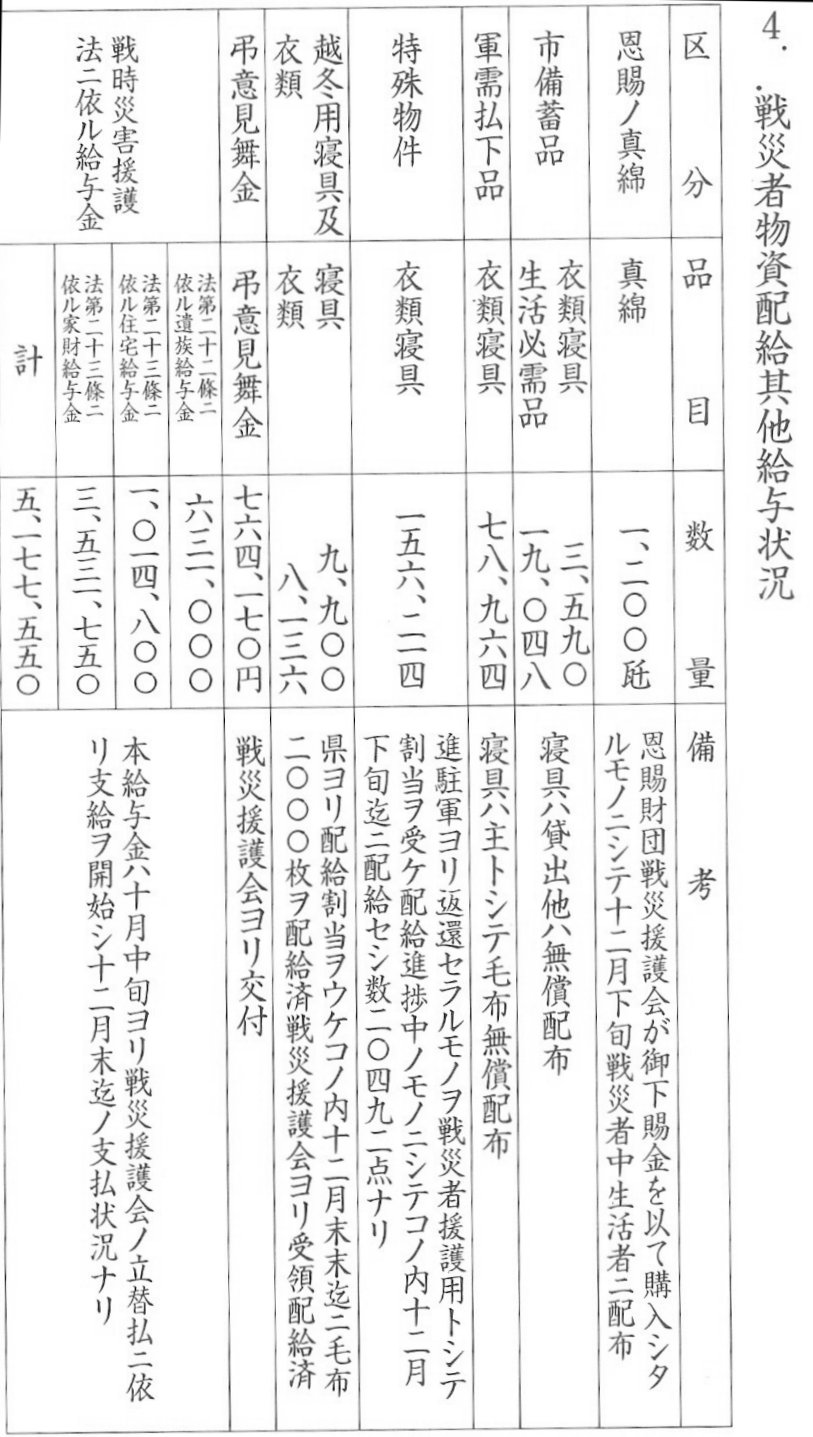 4. 戦災者物資配給其他給与状況
区分
品目
数量
備考
恩賜ノ真綿
真綿
一、二〇〇瓩
恩賜財団戦災援護会が御下賜金を以て購入シタ
ルモノニシテ十二月下旬戦災者中生活者ニ配布
市備蓄品
衣類寝具
生活必需品
三、五九〇
一九、〇四八
寝具ハ貸出他ハ無償配布
軍需払下品
衣類寝具
七八、九六四
寝具ハ主トシテ毛布無償配布
特殊物件
衣類寝具
一五六、二一四
進駐軍ヨリ返還セラルモノヲ戦災者援護用トシテ
割当ヲ受ケ配給進捗中ノモノニシテコノ内十二月
下旬迄ニ配給セシ数二〇四九二点ナリ
越冬用寝具及
衣類
寝具
衣類
九、九〇〇
八、一三六
県ヨリ配給割当ヲウケコノ内十二月末末迄ニ毛布
二〇〇〇枚ヲ配給済戦災援護会ヨリ受領配給済
弔意見舞金
弔意見舞金
七六四、一七〇円
戦災援護会ヨリ交付
戦時災害援護
法ニ依ル給与金
法第二十二條ニ
依ル遺族給与金
六三一、〇〇〇
法第二十三條ニ
依ル住宅給与金
一、〇一四、八〇〇
法第二十三條ニ
依ル家財給与金
三、五三一、七五〇
計
五、一七七、五五〇
本給与金ハ十月中旬ヨリ戦災援護会ノ立替払ニ依
リ支給ヲ開始シ十二月末迄ノ支払状況ナリ